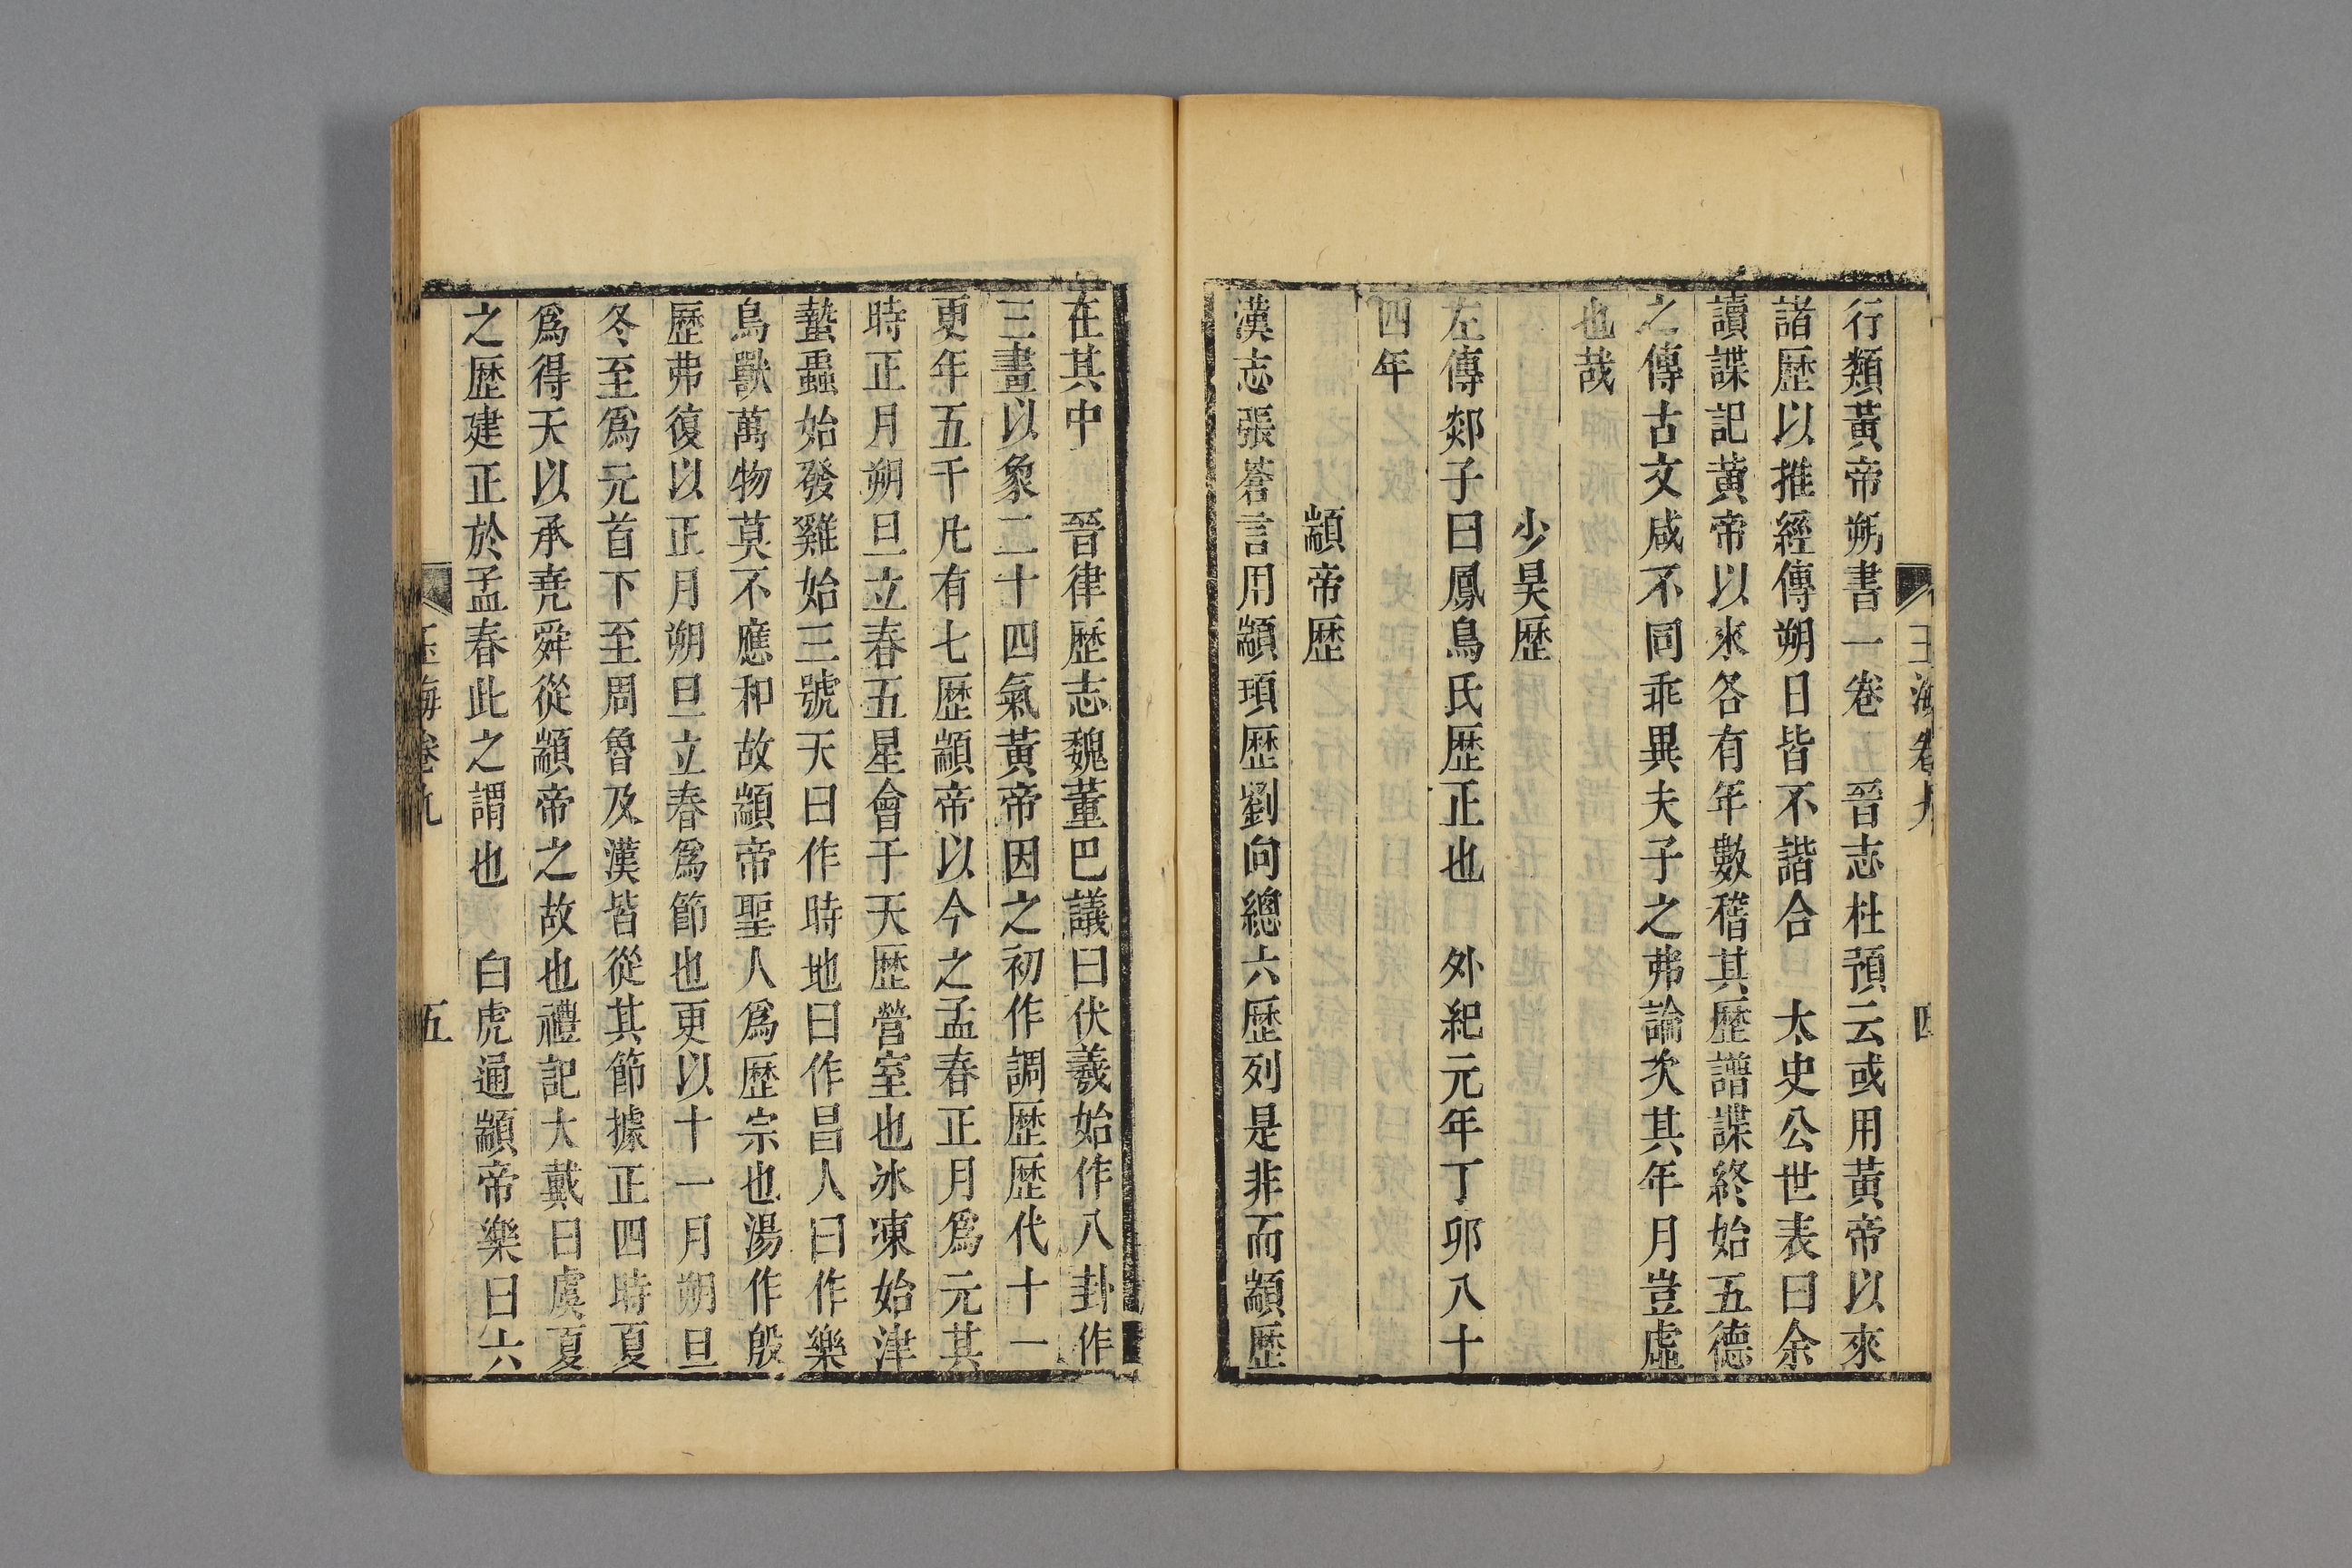 玉海卷九 四
行類黃帝朔書一卷 晉志杜預云或用黃帝以來
諸歴以推經傳朔日皆不諧合 太史公世表曰余
讀諜記黃帝以來各有年數稽其歴譜諜終始五德
之傳古文咸不同乖異夫子之弗論次其年月豈虛
也哉
少昊歴
左傳郯子曰鳳鳥氏歴正也 外紀元年丁卯八十
四年
顓帝歴
漢志張蒼言用顓頊歴劉向總六歴列是非而顓歴
在其中 晉律歴志魏董巴議曰伏羲始作八卦作
三畫以象二十四氣黃帝因之初作調歴歴代十一
更年五千凡有七歴顓帝以今之孟春正月爲元其
時正月朔旦立春五星會于天歴營室也冰凍始泮
蟄蟲始發雞始三號天曰作時地曰作昌人曰作樂
鳥獸萬物莫不應和故顓帝聖人爲歴宗也湯作殷
歴弗復以正月朔旦立春爲節也更以十一月朔旦
冬至爲元首下至周魯及漢皆從其節據正四時夏
爲得天以承堯舜從顓帝之故也禮記大戴曰虞夏
之歴建正於孟春此之謂也 白虎通顓帝樂曰六
玉海卷九 五